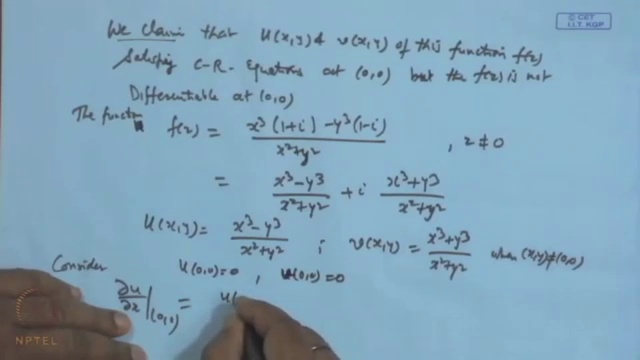 © CET
I.I.T. KGP
We Claim that u(x,y) & v(x,y) of this function f(z)
Satisfy C-R- Equations at (0,0) but the f(z) is not
Differentiable at (0,0)
The function f(z) = x³(1+i) - y³(1-i) / x²+y² , z ≠ 0
= x³-y³ / x²+y² + i x³+y³ / x²+y²
u(x,y) = x³-y³ / x²+y² ; v(x,y) = x³+y³ / x²+y² when (x,y)≠(0,0)
Consider u(0,0)=0 , v(0,0)=0
∂u/∂x |(0,0) = u(
NPTEL